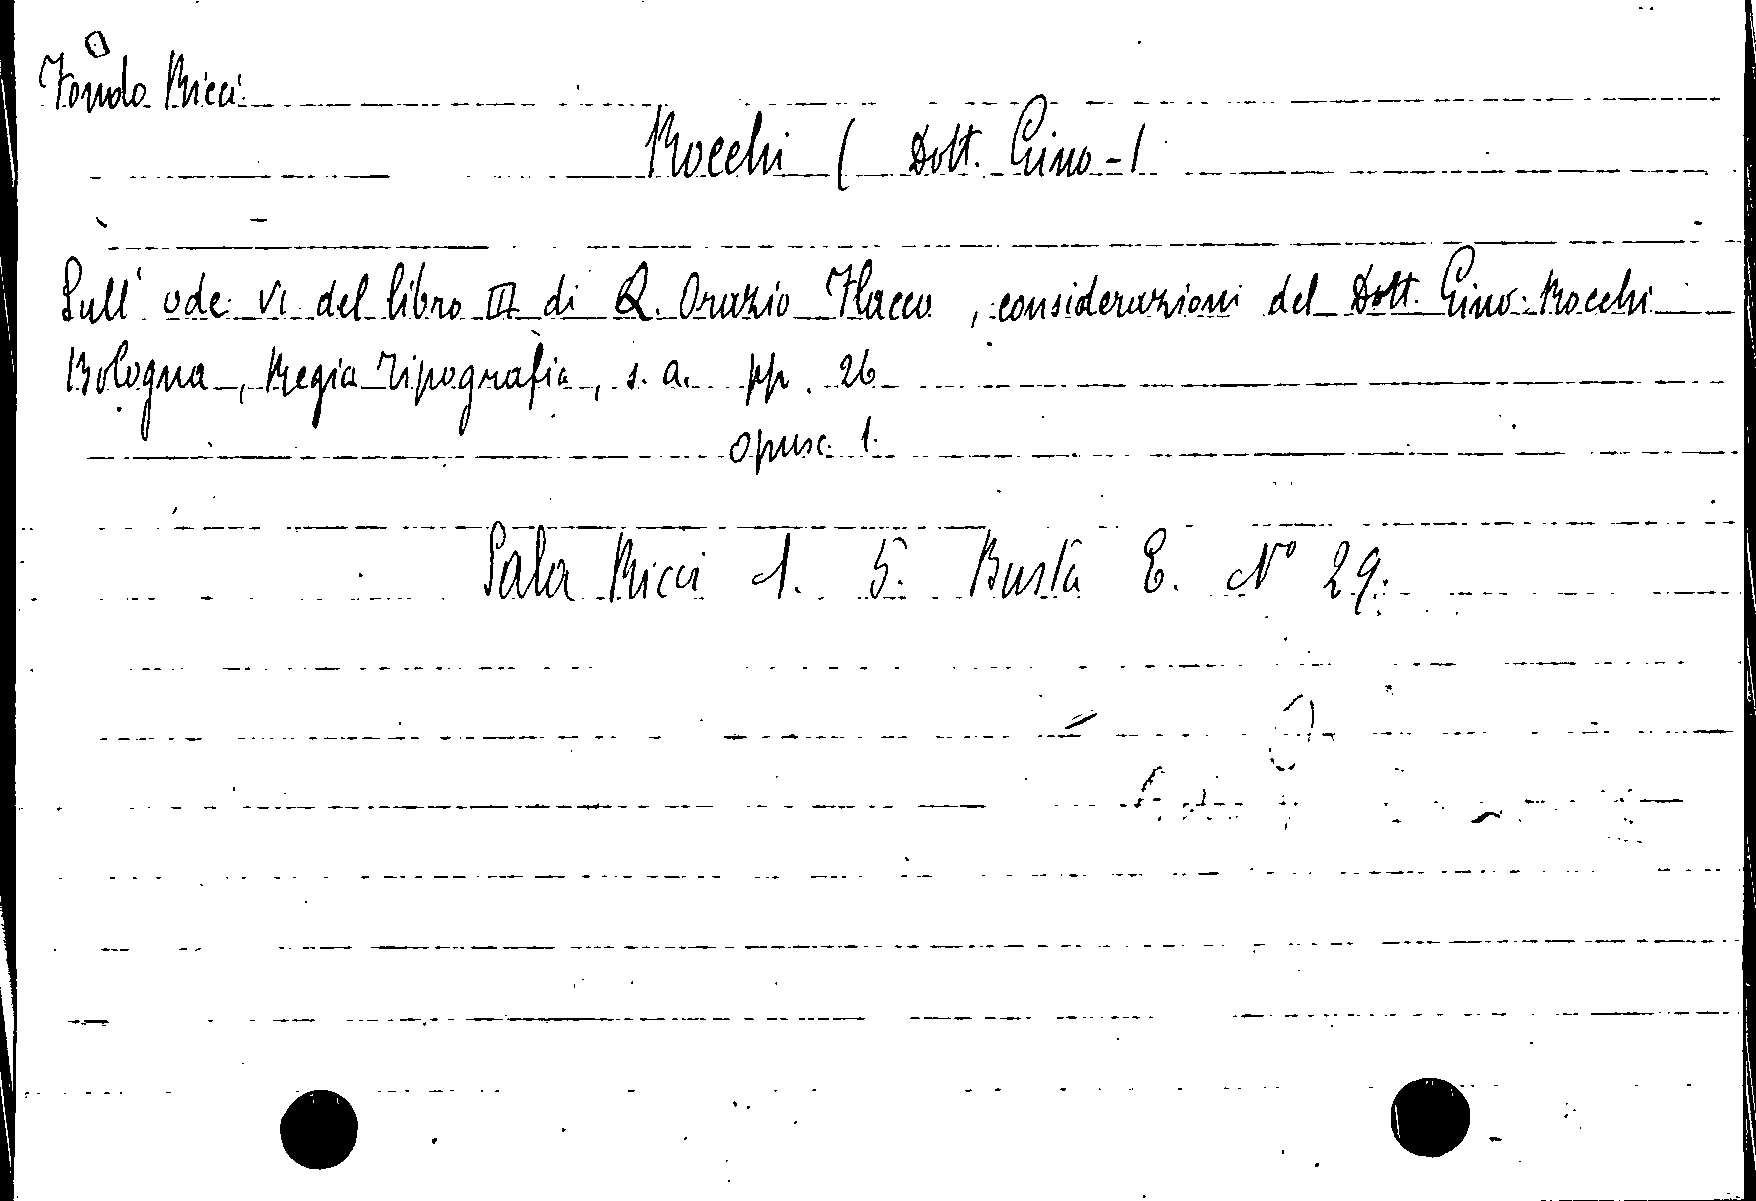 Fondo Ricci
Rocchi ( Dott. Gino-)
Sull' ode VI del libro III di Q. Orazio Flacco, considerazioni del Dott. Gino Rocchi
Bologna, Regia Tipografia, s. a. pp. 26
opusc. 1.
Sala Ricci 1. 5. Busta E. N° 29.